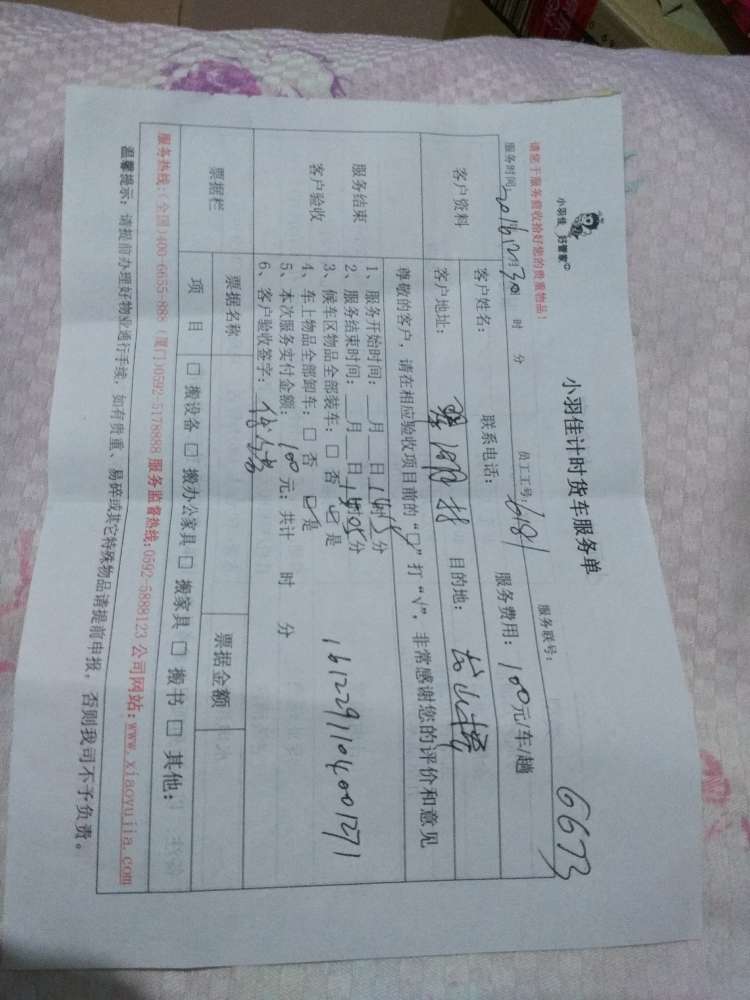 小羽佳 好管家
小羽佳计时货车服务单
6673
请您于服务前收拾好您的贵重物品!
服务联号:
服务时间:2016年12月30日 时 分 员工工号: 6181
客户资料
客户姓名: 联系电话: 服务费用: 100元/车/趟
客户地址: 目的地:
尊敬的客户，请在相应验收项目前的“□”打“√”，非常感谢您的评价和意见
服务结束
客户验收
1、服务开始时间: __月__日14时15分
2、服务结束时间: __月__日15时05分
3、候车区物品全部装车: □ 否 ☑ 是
4、车上物品全部卸车: □ 否 ☑ 是
5、本次服务实付金额: 100元; 共计 时 分
6、客户验收签字:
1612291104001271
票据栏 票据名称 票据金额
项 目 □ 搬设备 □ 搬办公家具 □ 搬家具 □ 搬书 □ 其他:
服务热线:(全国)400-6655-888 (厦门)0592-5178888 服务监督热线:0592-5888123 公司网站:www.xiaoyujia.com
温馨提示: 请提前办理好物业通行手续，如有贵重、易碎或其它特殊物品请提前申报，否则我司不予负责。